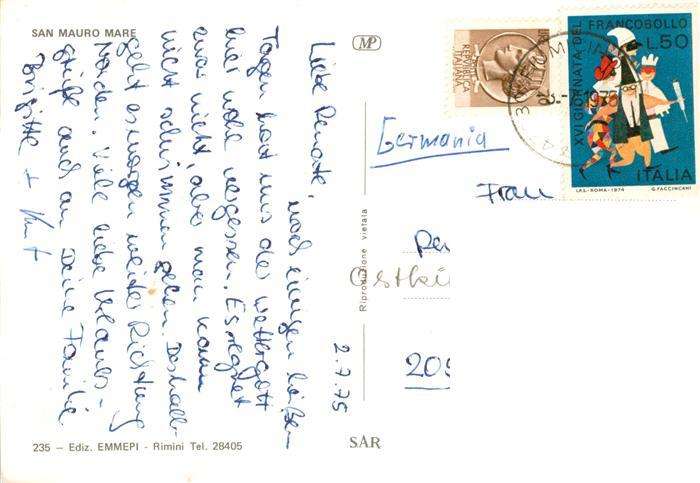 SAN MAURO MARE
MP
2.7.75
Liebe Renate,
nach einigen heißen
Tagen hat uns der Wettergott
hier wohl vergessen. Es regnet
zwar nicht, aber man kann
nicht schwimmen gehen. Deshalb
geht es morgen weiter Richtung
Norden. Viele liebe Urlaubs-
grüße auch an Deine Familie
Brigitte + Kurt
235 – Ediz. EMMEPI - Rimini Tel. 28405
SAR
Riproduzione vietata
REPUBBLICA
ITALIANA
XVI GIORNATA DEL
FRANCOBOLLO
L.50
ITALIA
I.P.S.-ROMA-1974
G. FACCINCANI
Germania
Frau
Ren
Ostkü
209